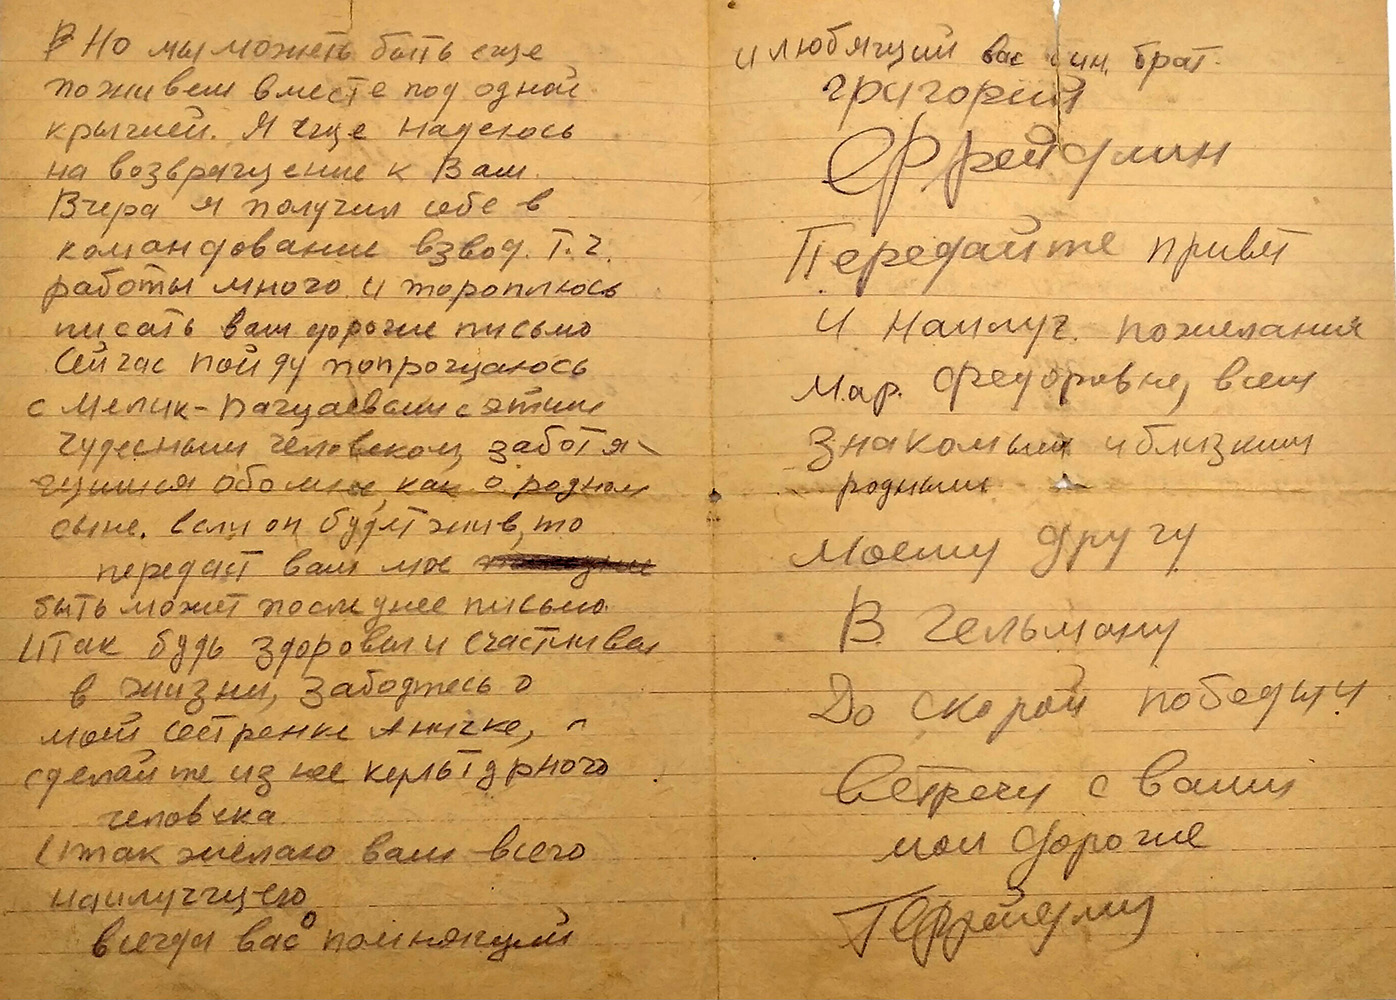 Но мы можеть быть еще
поживем вместе под одной
крышей. Я еще надеюсь
на возвращение к Вам.
Вчера я получил себе в
командование взвод. Т.ч.
работы много и тороплюсь
писать вам дорогие письмо
Сейчас пойду попрощаюсь
с Мелик-Пашаевым с этим
чудесным человеком, заботя-
щимся обомне, как о родном
сыне. Если он будет жив, то
передаст вам мое
быть может последнее письмо.
Итак будь здоровы и счастливы
в жизни, заботтесь о
моей сестренке Аничке,
сделайте из нее культурного
человека
Итак желаю вам всего
наилучшего
всегда вас помнящий
и любящий вас сын, брат.
григорий
Фрейдлин
Передайте привет
и наилуч. пожелания
Мар. Федоровне, всем
знакомым и близким
родным
Моему другу
В. Гельману
До скорой победы и
встречи с вами
мои дорогие
ГФрейдлин